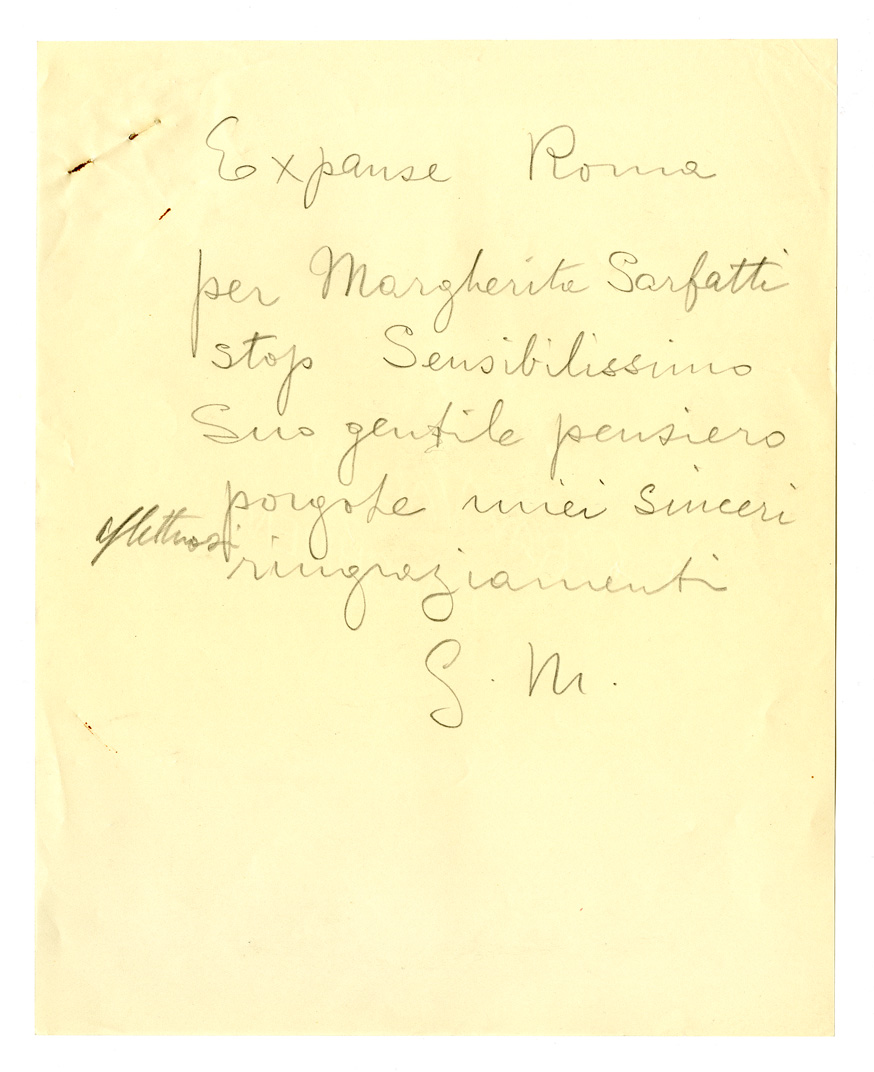 Expanse Roma
per Margherita Sarfatti
stop Sensibilissimo
Suo gentile pensiero
porgole miei sinceri
affettuosi
ringraziamenti
G. M.